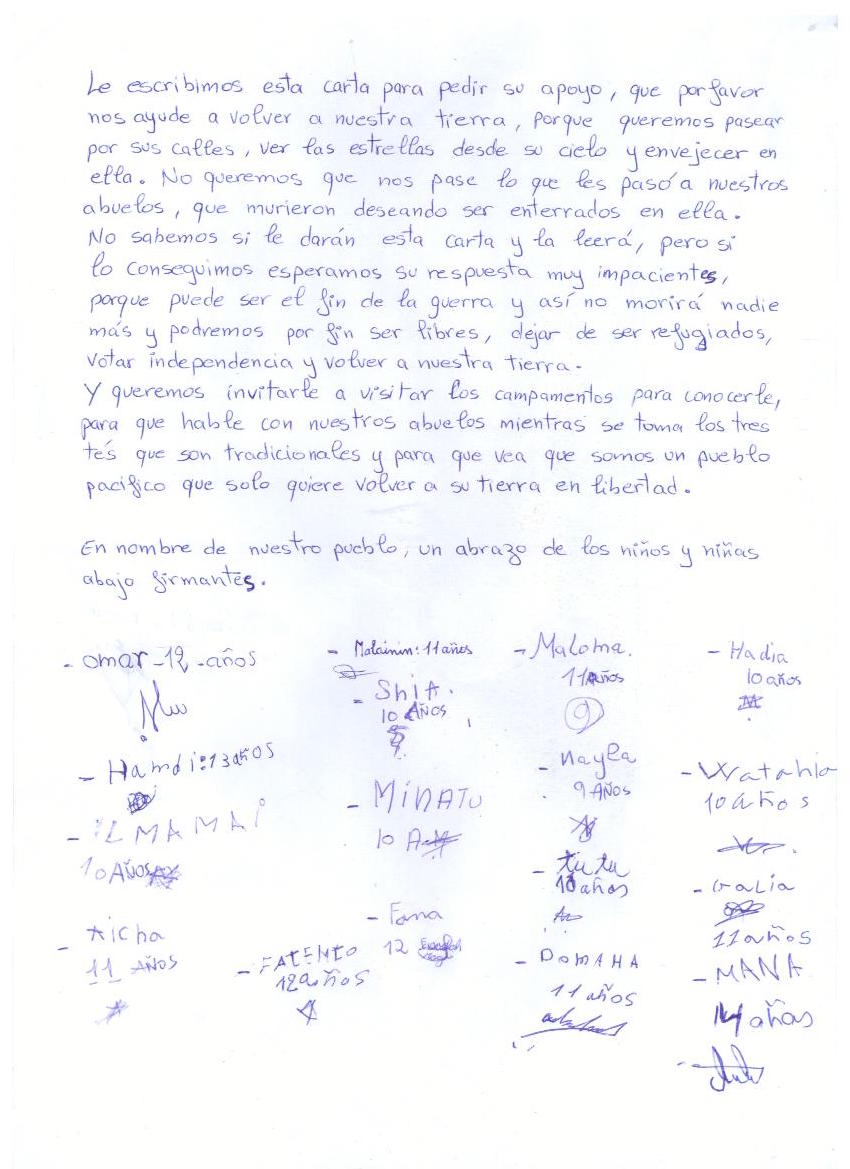 Le escribimos esta carta para pedir su apoyo, que por favor
nos ayude a volver a nuestra tierra, porque queremos pasear
por sus calles, ver las estrellas desde su cielo y envejecer en
ella. No queremos que nos pase lo que les pasó a nuestros
abuelos, que murieron deseando ser enterrados en ella.
No sabemos si le darán esta carta y la leerá, pero si
lo conseguimos esperamos su respuesta muy impacientes,
porque puede ser el fin de la guerra y así no morirá nadie
más y podremos por fin ser libres, dejar de ser refugiados,
votar independencia y volver a nuestra tierra.
Y queremos invitarle a visitar los campamentos para conocerle,
para que hable con nuestros abuelos mientras se toma los tres
tés que son tradicionales y para que vea que somos un pueblo
pacífico que solo quiere volver a su tierra en libertad.
En nombre de nuestro pueblo, un abrazo de los niños y niñas
abajo firmantes.
- omar - 12 - años
- Malainin: 11 años
- Maloma.
11 años
- Hadia
10 años
- Shia.
10 AÑOS
- Hamdi: 13 años
- Nayla
9 AÑOS
10 años
- MINATU
10
- ILMAMAI
10 AÑOS
- tutu
10 años
- Galia
11 años
- Aicha
11 AÑOS
- Fana
12
12 años
- DOMAHA
11 años
- MANA
14 años